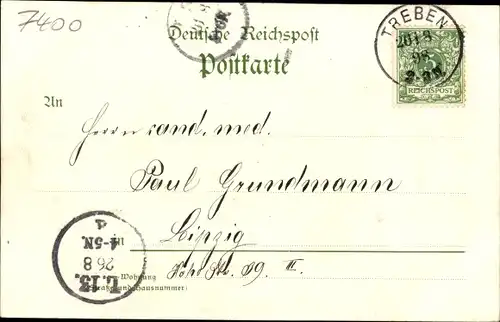 7400
Deutsche Reichspost
Postkarte
TREBEN
98
REICHSPOST
An
Herrn cand. med.
Paul Grundmann
Leipzig
Wohnung
Hohe Str. 39 II.
(Straße und Hausnummer)
L.13.
26 8
4-5N.